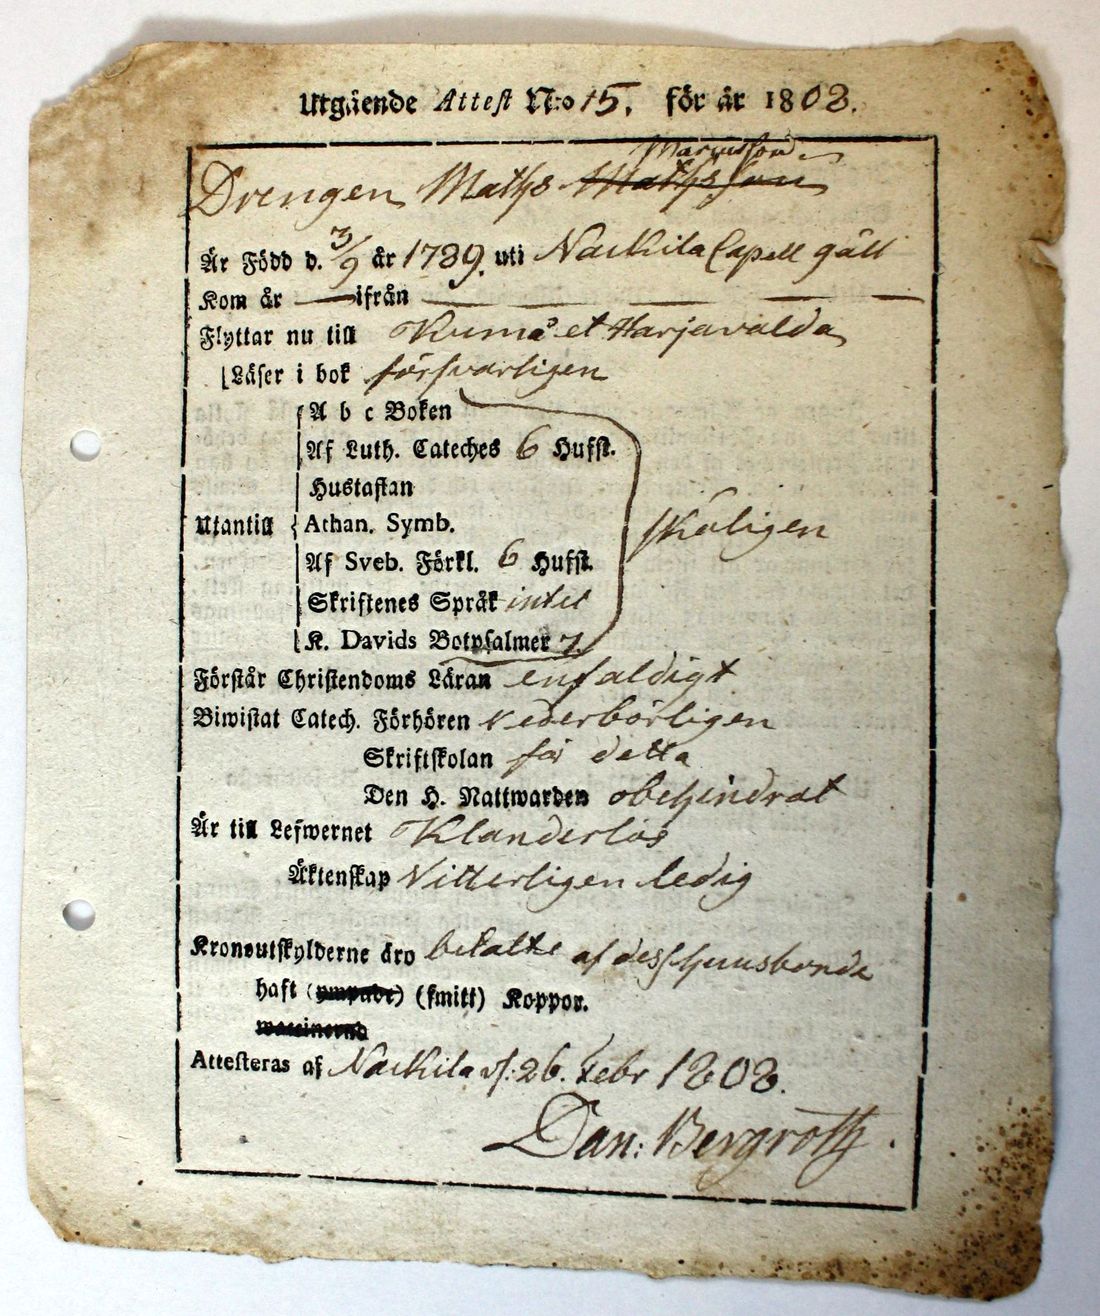 Utgående Attest N:o 15. för år 1808.
Marcusson
Drengen Maths Mathsson
Är Född d. 3/9 år 1789. uti Nackila Capell gäll
Kom år — ifrån —
Flyttar nu till Kumå et Harjavalda
Läser i bok försvarligen
A b c Boken
Af Luth. Cateches 6 Hufst.
Hustaflan
Utantill Athan. Symb. skäligen
Af Sveb. Förkl. 6 Hufst.
Skriftenes Språk intet
K. Davids Botpsalmer 7.
Förstår Christendoms Läran enfaldigt
Biwistat Catech. Förhören vederbörligen
Skriftskolan för detta
Den H. Nattwarden obehindrat
Är till Lefwernet Klanderlös
Äktenskap Vitterligen ledig
Kronoutskylderne äro betalte af dess husbonde
haft (ympade) (smitt) Koppor.
waccinerad
Attesteras af Nackila d: 26. Febr 1808.
Dan: Bergroth.